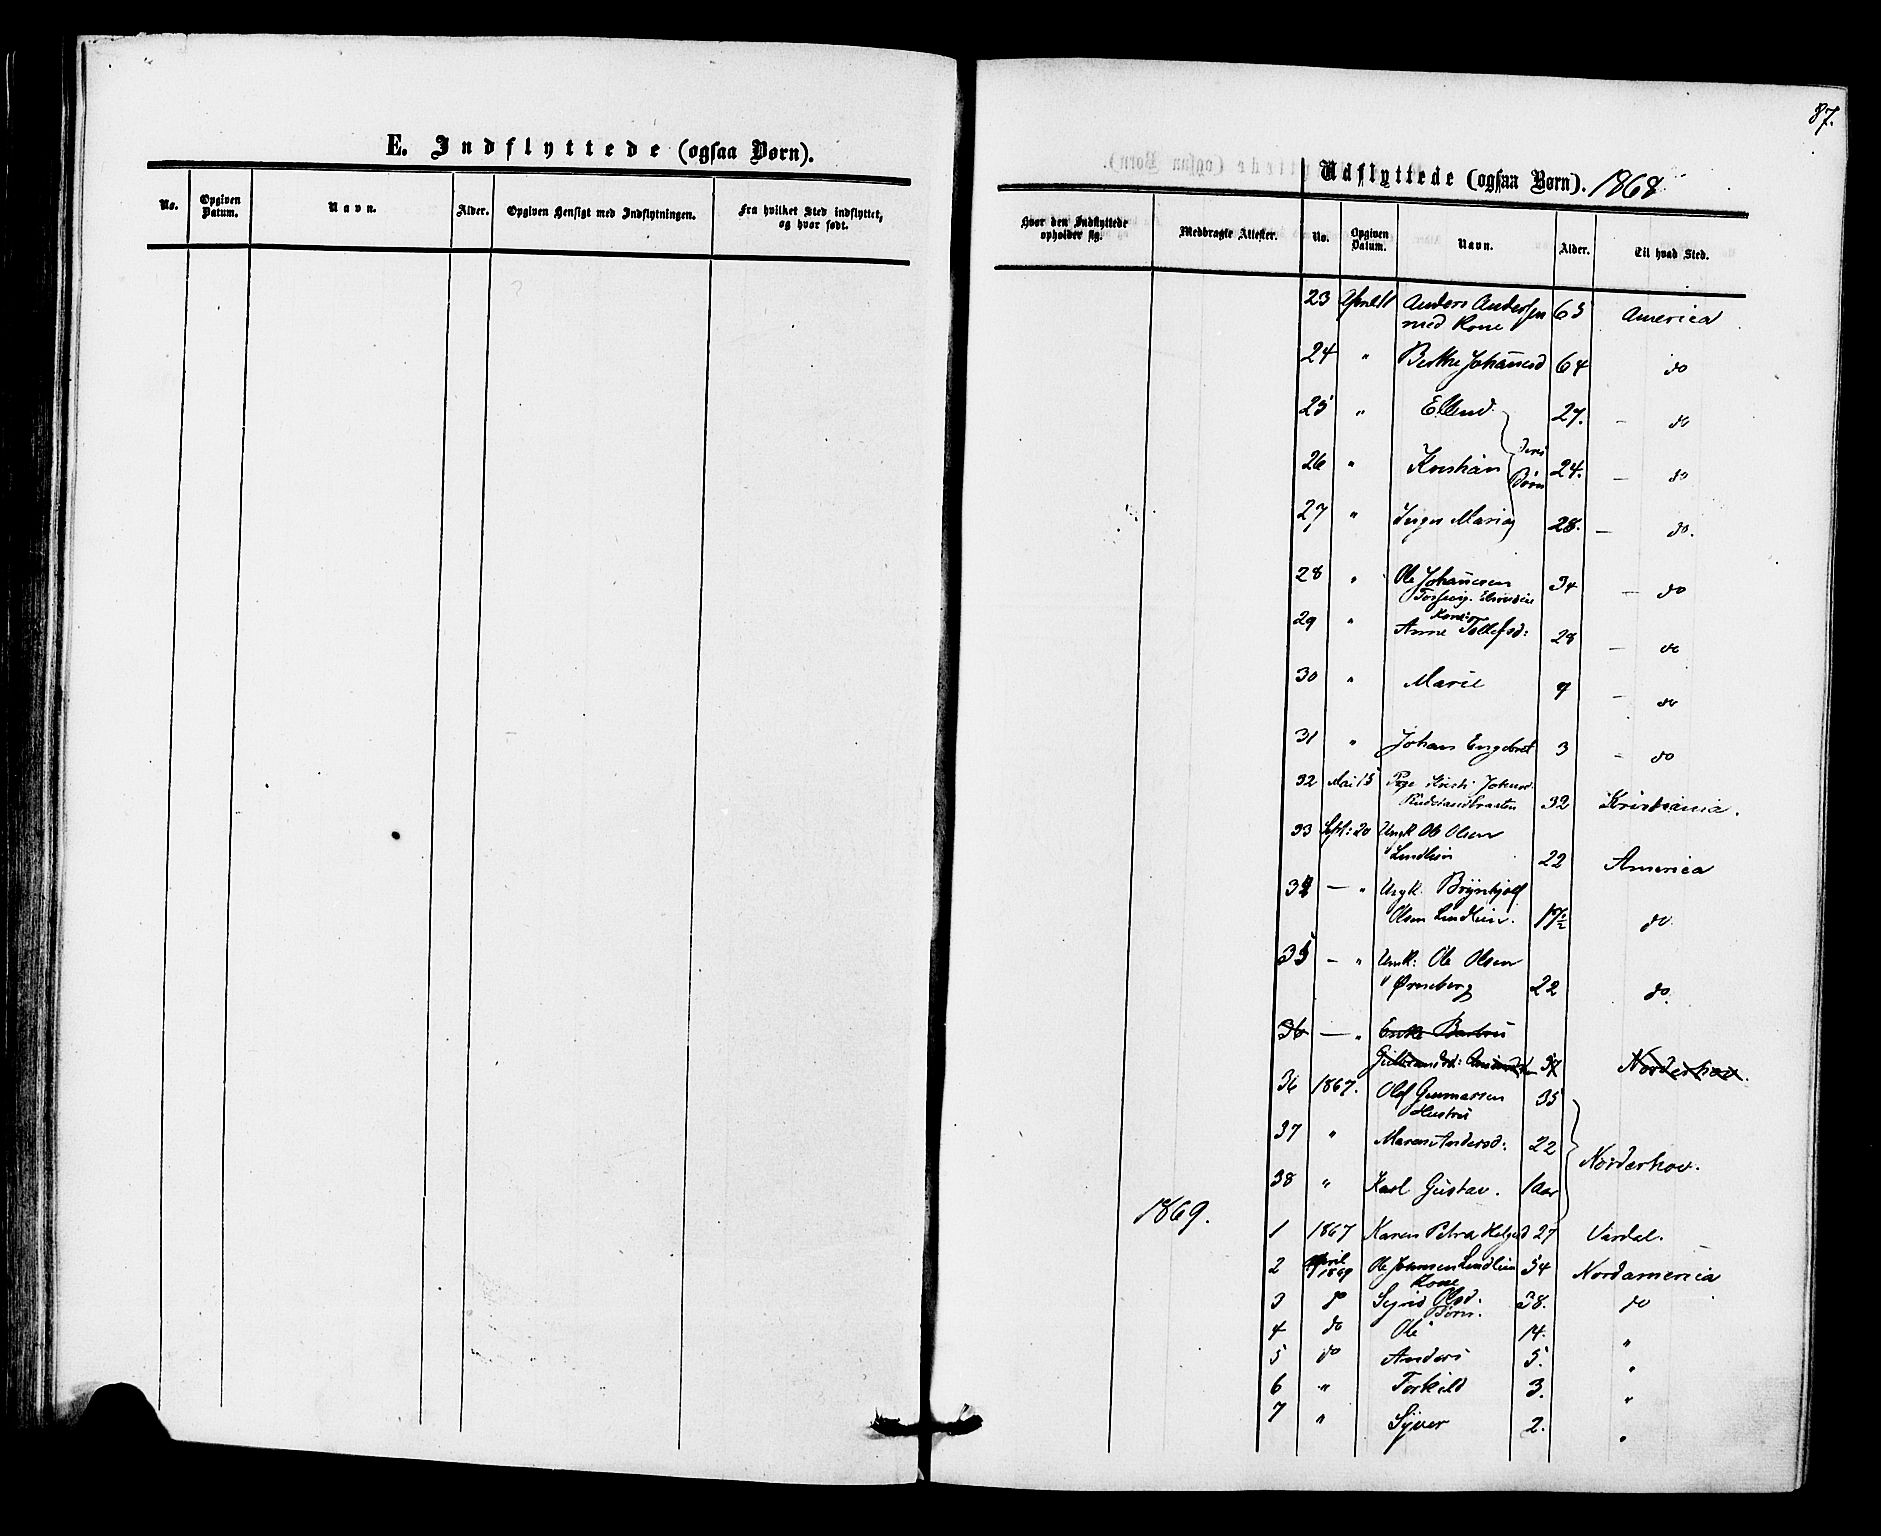 87.
E. Indflyttede (ogsaa Børn).
No. Opgiven Datum. Navn. Alder. Opgiven Hensigt med Indflytningen. Fra hvilket Sted indflyttet, og hvor født.
Udflyttede (ogsaa Børn). 1868
Hvor den Indflyttede opholder sig. Medbragte Attester. No. Opgiven Datum. Navn. Alder. Til hvad Sted.
23 April Anders Andersen 65 America
med Kone
24 " Berthe Johannesd 64 do
25 " Ellend 27. - do
26 " Kristian 24. - do
deres Børn
27 " Inger Maria 28. - do.
28 " Ole Johannesen 34 - do
29 " Kone
Anne Tollefsd: 28 - do
30 " Marie 7 - do
31 " Johan Engebret 3 - do
32 Mai 15 Pige Kristi Johnsd.
32 Kristiania.
33 Sept: 20 Ungk. Ole Olsen
Lindlien 22 America
34 - " Ungk. Brynhjolf
Olsen Lindlien. 17½ do.
35 - " Ungk: Ole Olsen
Ørneberg 22 do.
36 - " Enke
Norderhov.
36 1867. Olof Gunnarsen 35
Hustru
37 " Maren Andersd: 22
Norderhov.
38 " Karl Gustav. 1 Aar
1869.
1 1867 Karen Petra Helgesd 27 Virdal.
2 April 1869 Ole Johnsen Lindlien 54 Nordamerica
Kone
3 do Sigrid Olsd. 38. do
Børn.
4 do Ole 14. "
5 do Anders 5. "
6 " Torkild 3. "
7 " Syver 2. "